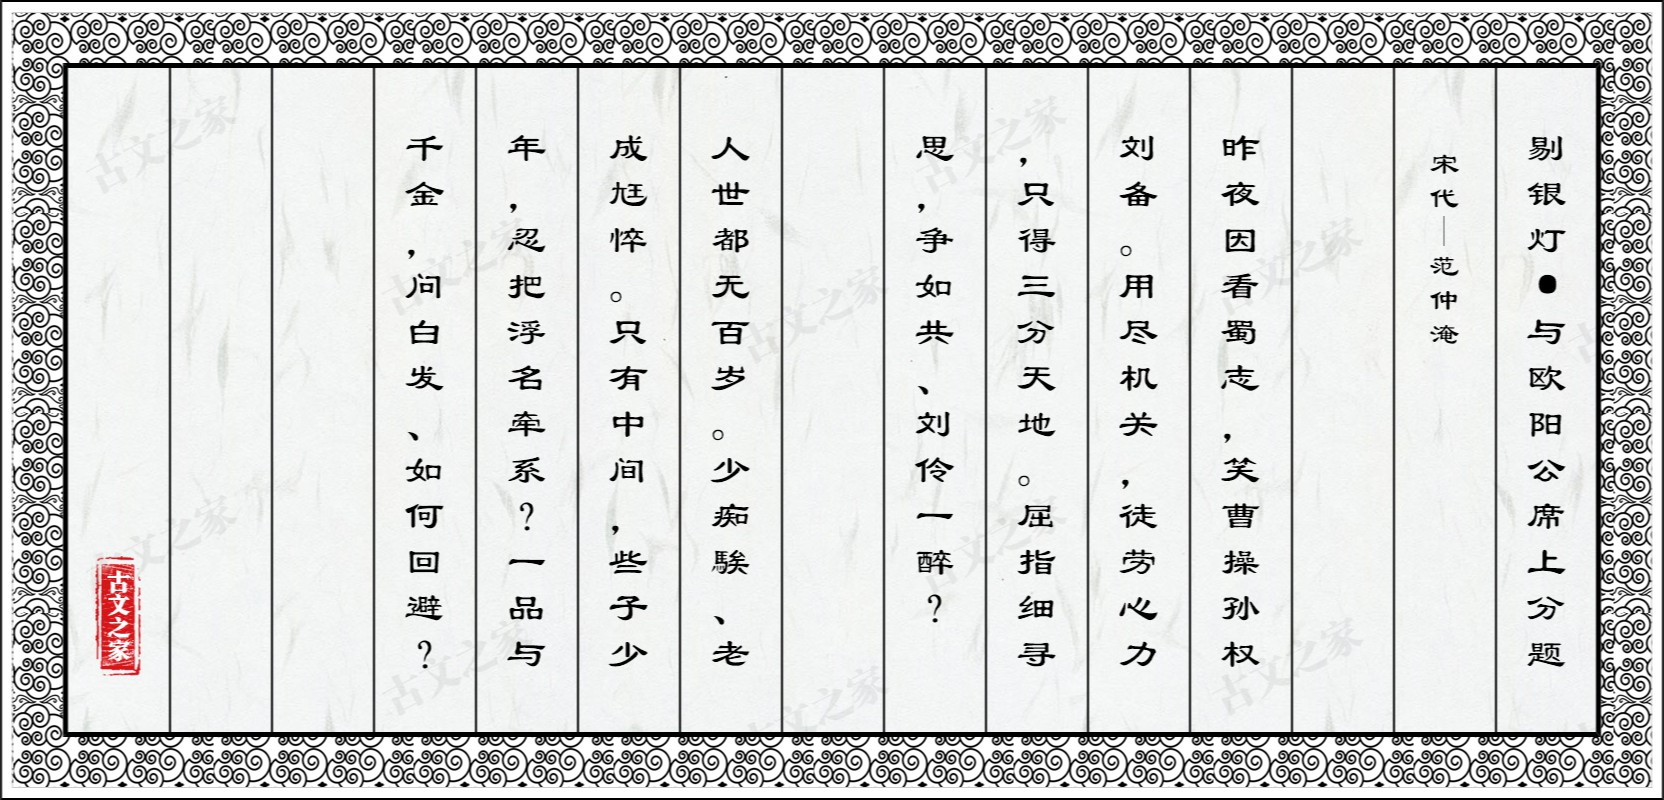 剔银灯●与欧阳公席上分题
宋代—范仲淹
昨夜因看蜀志，笑曹操孙权
刘备。用尽机关，徒劳心力
，只得三分天地。屈指细寻
思，争如共、刘伶一醉？
人世都无百岁。少痴騃、老
成尪悴。只有中间，些子少
年，忍把浮名牵系？一品与
千金，问白发、如何回避？
古文之家